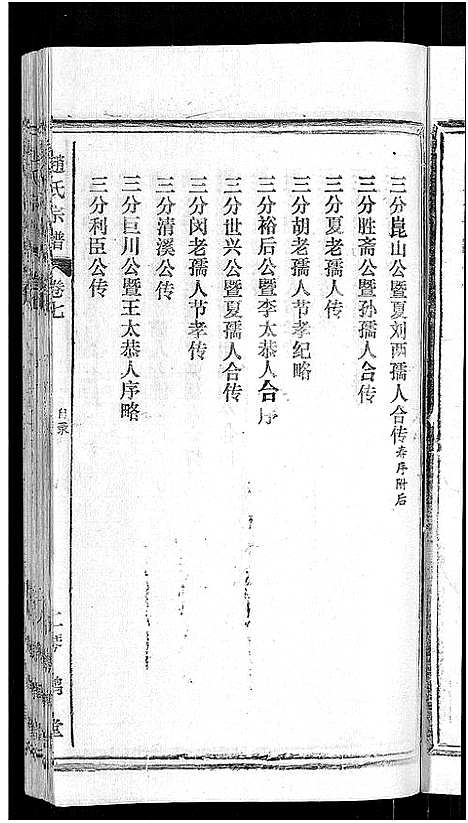 三分崑山公暨夏刘两孺人合传寿序附后
三分胜斋公暨孙孺人合传
三分夏老孺人传
三分胡老孺人节孝纪略
三分裕后公暨李太恭人合序
三分世兴公暨夏孺人合传
三分闵老孺人节孝传
三分清溪公传
三分巨川公暨王太恭人序略
三分利臣公传
赵氏宗譜
卷七
目录
琴鹤堂